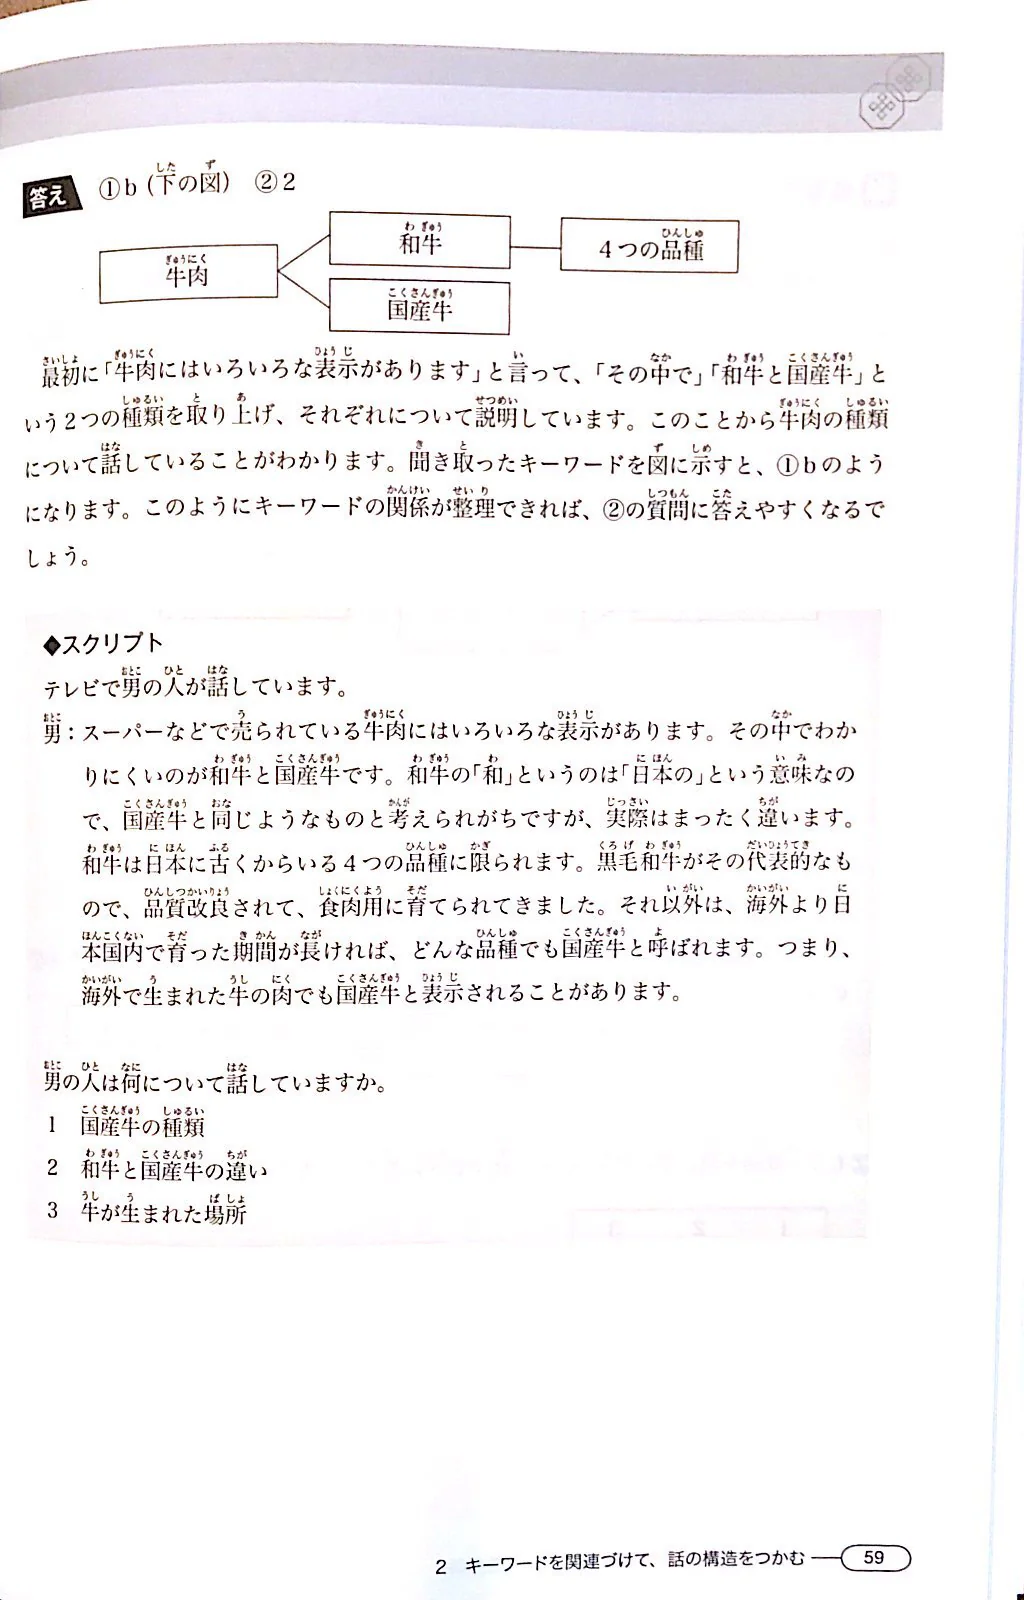 答え ①b（下の図） ②2
牛肉
和牛
4つの品種
国産牛
最初に「牛肉にはいろいろな表示があります」と言って、「その中で」「和牛と国産牛」と
いう2つの種類を取り上げ、それぞれについて説明しています。このことから牛肉の種類
について話していることがわかります。聞き取ったキーワードを図に示すと、①bのよう
になります。このようにキーワードの関係が整理できれば、②の質問に答えやすくなるで
しょう。
◆スクリプト
テレビで男の人が話しています。
男：スーパーなどで売られている牛肉にはいろいろな表示があります。その中でわか
りにくいのが和牛と国産牛です。和牛の「和」というのは「日本の」という意味なの
で、国産牛と同じようなものと考えられがちですが、実際はまったく違います。
和牛は日本に古くからいる4つの品種に限られます。黒毛和牛がその代表的なも
ので、品質改良されて、食肉用に育てられてきました。それ以外は、海外より日
本国内で育った期間が長ければ、どんな品種でも国産牛と呼ばれます。つまり、
海外で生まれた牛の肉でも国産牛と表示されることがあります。
男の人は何について話していますか。
1 国産牛の種類
2 和牛と国産牛の違い
3 牛が生まれた場所
2 キーワードを関連づけて、話の構造をつかむ 59